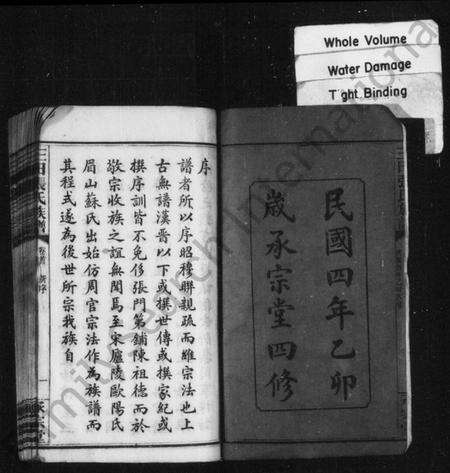 Whole Volume
Water Damage
Tight Binding
民國四年乙卯
歲承宗堂四修
序
譜者所以序昭穆聯親疏而維宗法也上
古無譜漢晉以下或撰世傳或撰家紀或
撰序訓皆不免侈張門第鋪陳祖德而於
敬宗收族之誼無聞焉至宋廬陵歐陽氏
眉山蘇氏出始仿周官宗法作為族譜而
其程式遂為後世所宗我族自